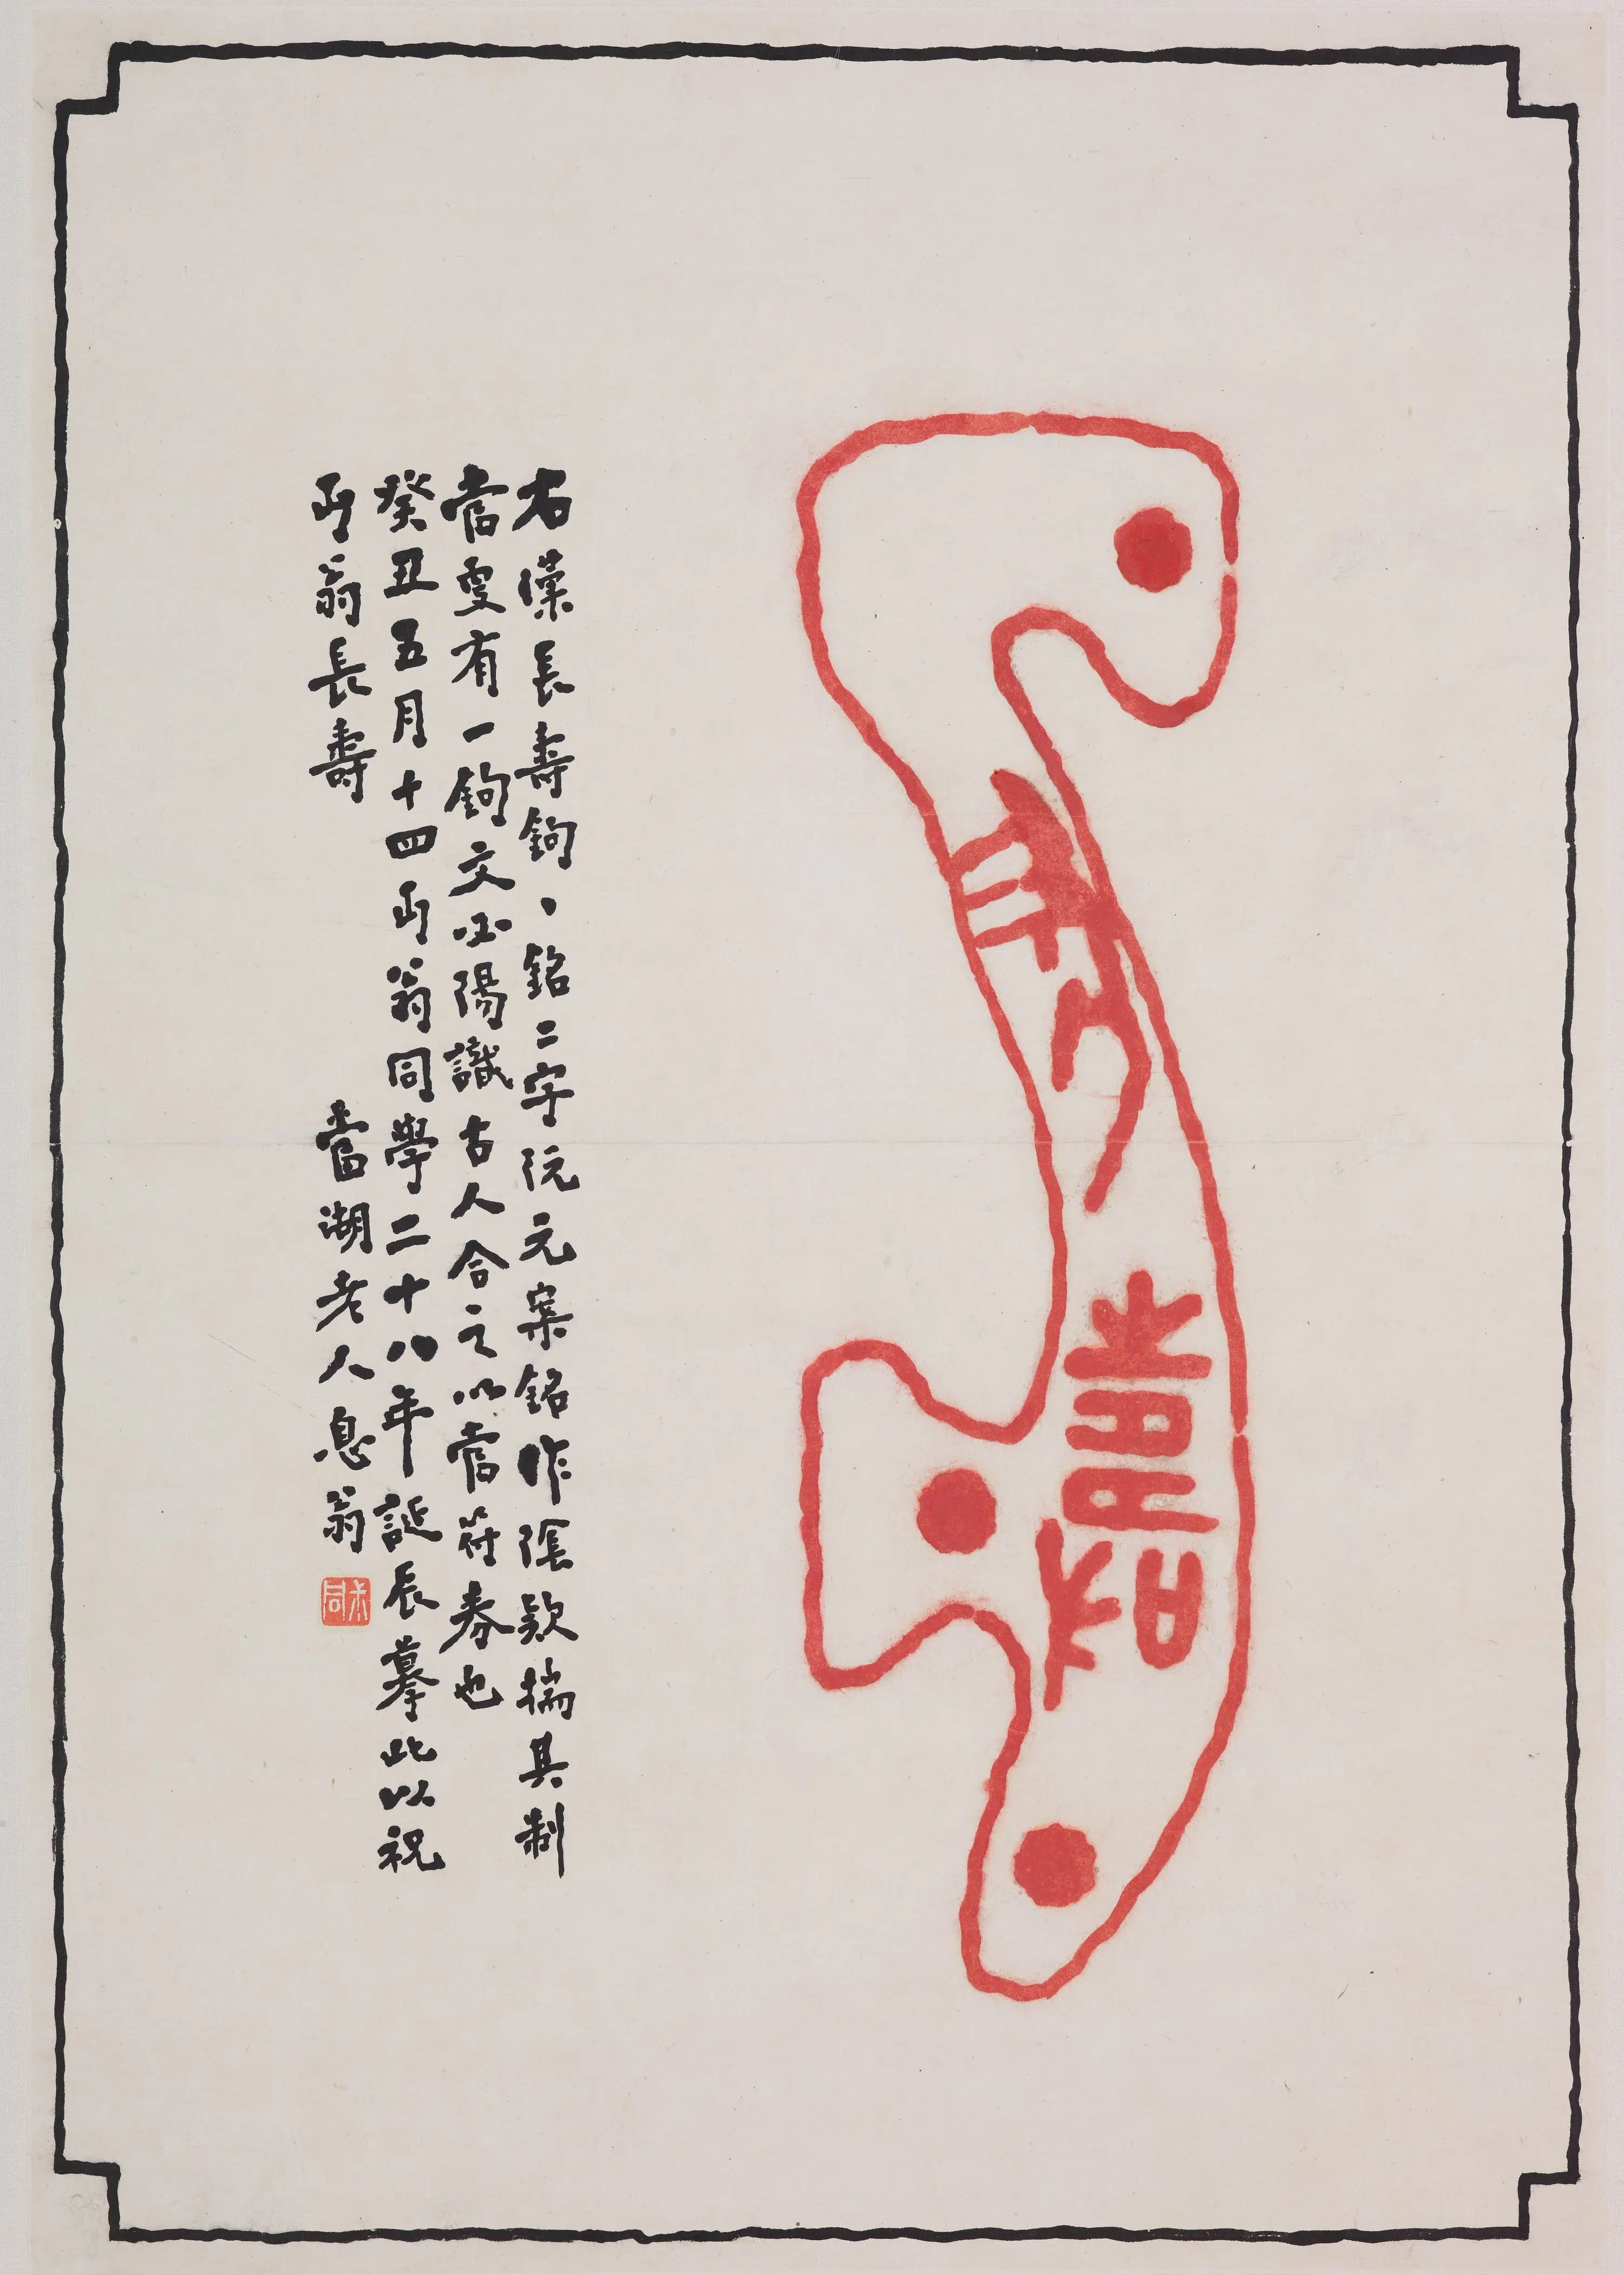 長壽
右漢長壽鉤、銘二字阮元案銘作陰款揣其制
當更有一鉤文必陽識古人合之以當符券也
癸丑五月十四丏翁同學二十八年誕辰摹此以祝
丏翁長壽 當湖老人息翁